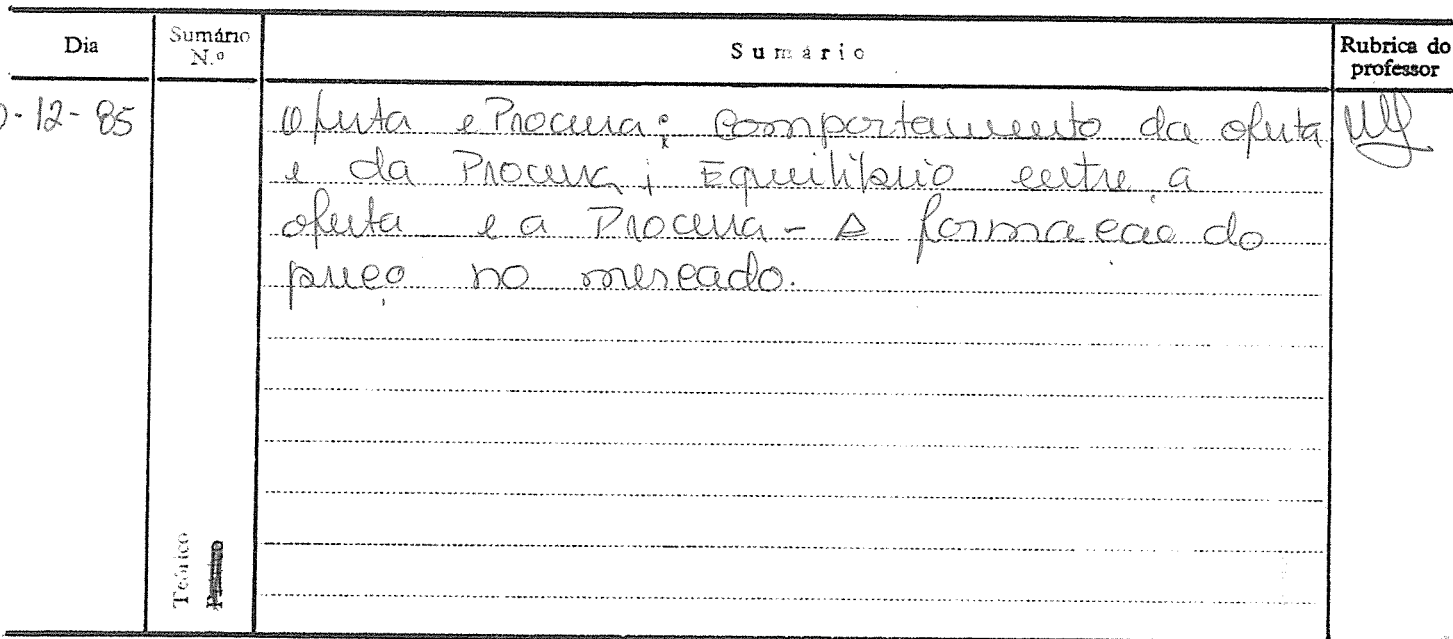 Dia Sumário N.º Sumário Rubrica do professor
0-12-85 Oferta e Procura: Comportamento da oferta
e da Procura; Equilíbrio entre a
oferta e a Procura - A formação do
preço no mercado.
Teórico